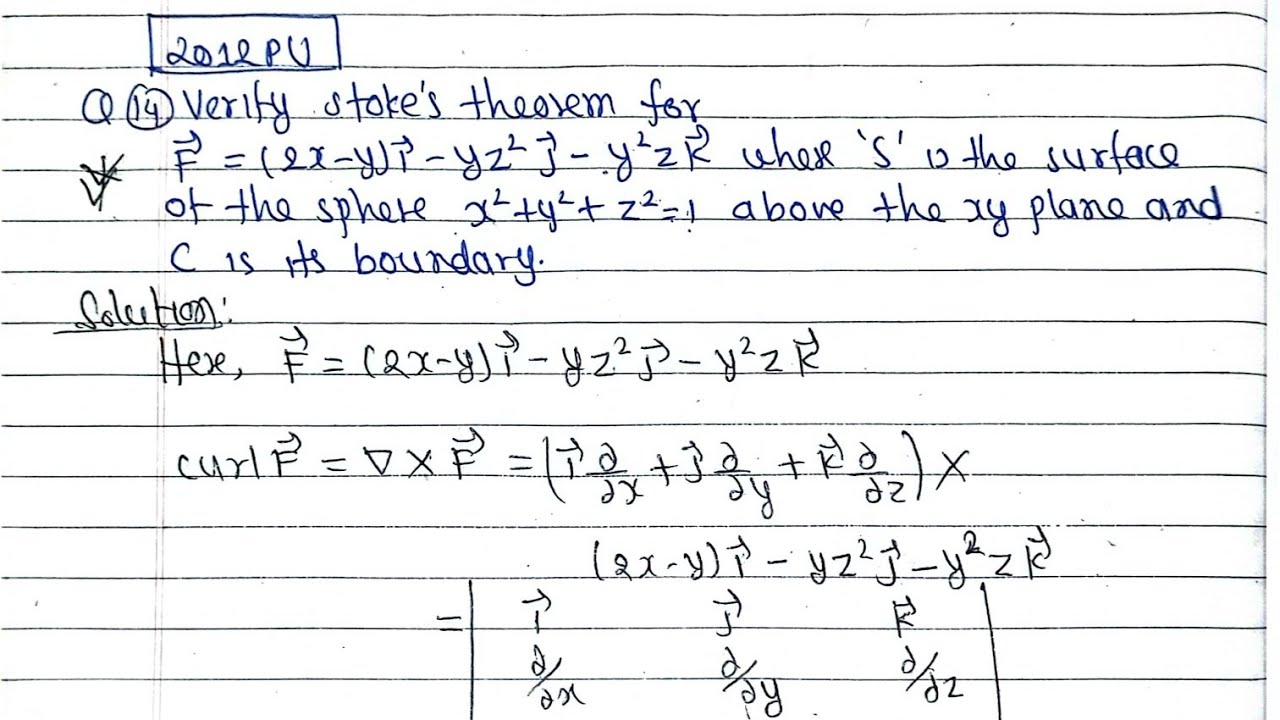 2012 PU
Q (14) Verify stoke's theorem for
F⃗ = (2x-y)i⃗ - yz²j⃗ - y²zk⃗ where 's' is the surface
of the sphere x²+y²+z²=1 above the xy plane and
C is its boundary.
Solution:
Here, F⃗ = (2x-y)i⃗ - yz²j⃗ - y²zk⃗
curl F⃗ = ∇ × F⃗ = (i⃗ ∂/∂x + j⃗ ∂/∂y + k⃗ ∂/∂z) ×
(2x-y)i⃗ - yz²j⃗ - y²zk⃗
= | i⃗ j⃗ k⃗ |
| ∂/∂x ∂/∂y ∂/∂z |